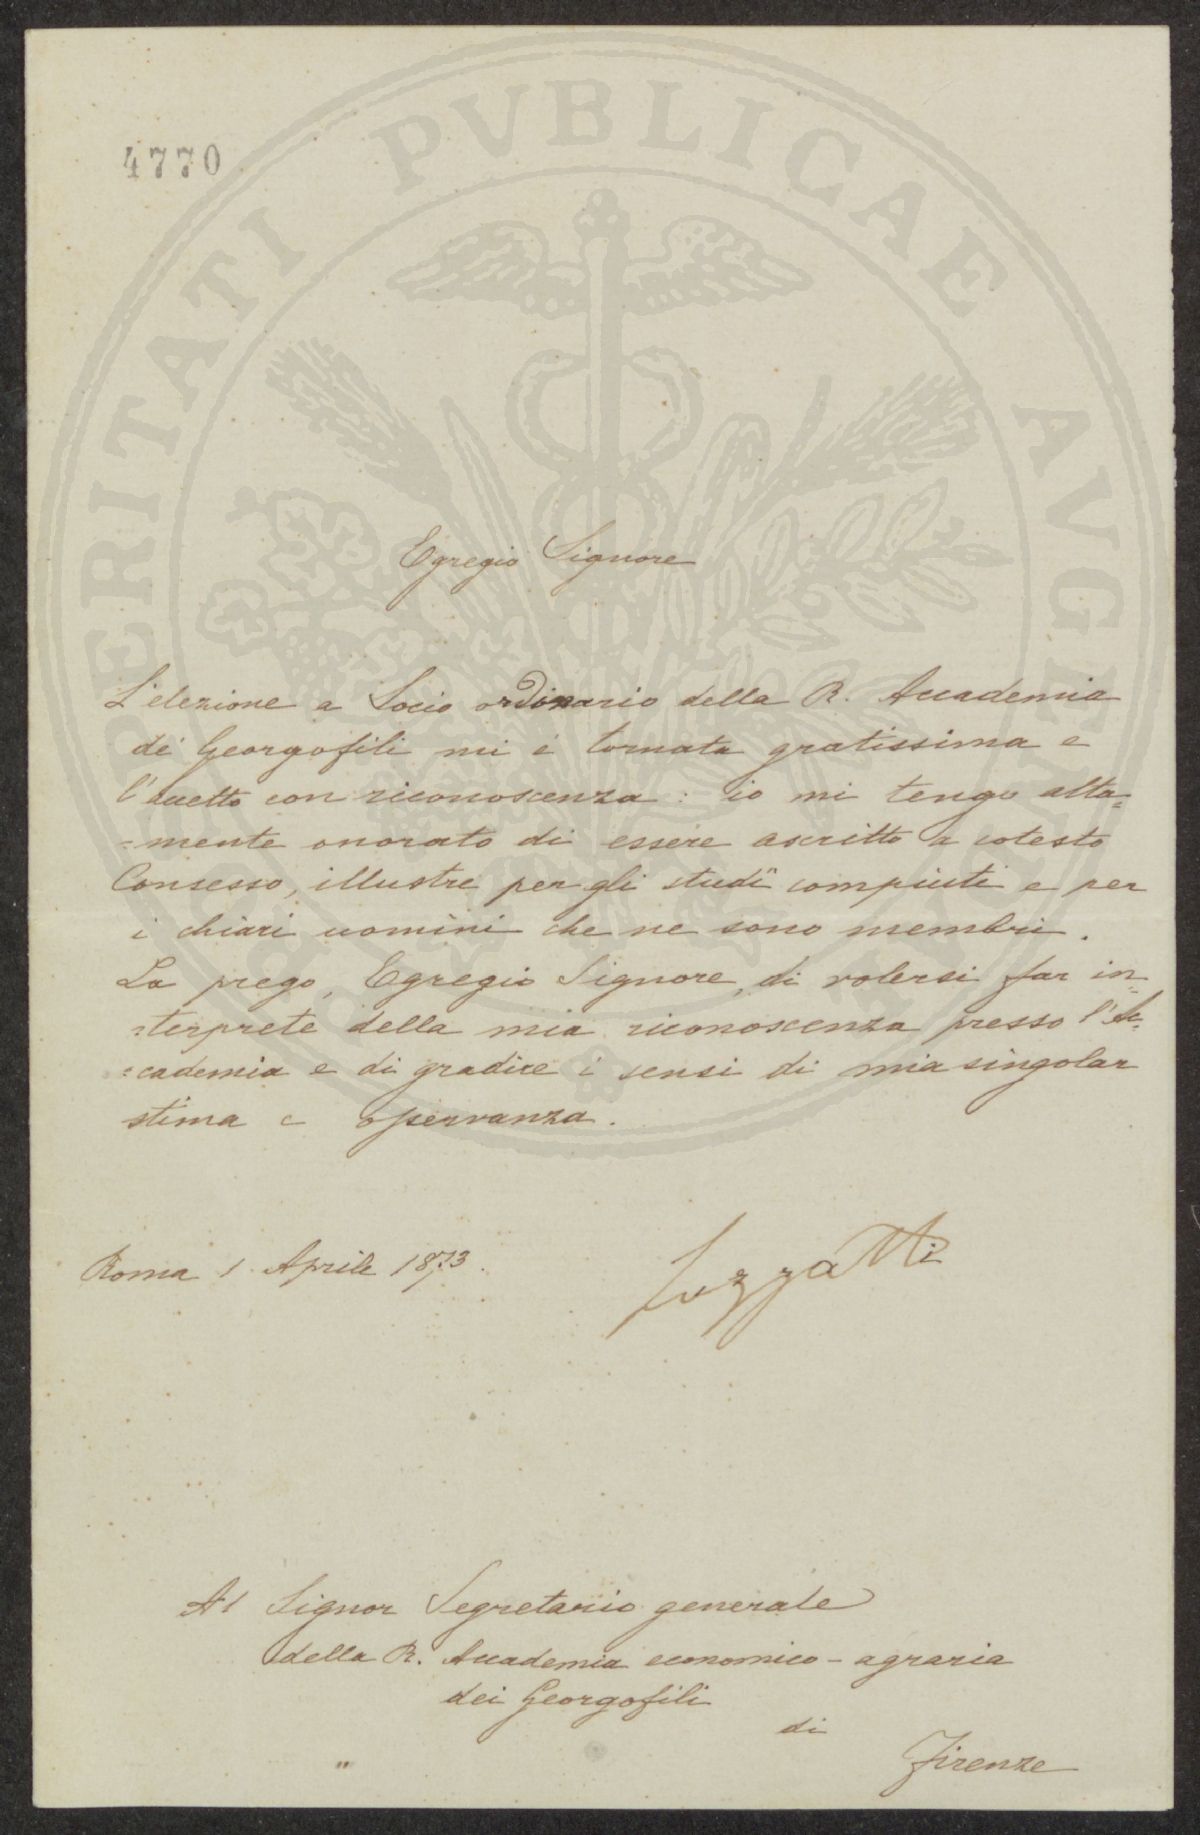 4770
PROSPERITATI PVBLICAE AVGENDAE
Egregio Signore
L'elezione a Socio ordinario della R. Accademia
dei Georgofili mi è tornata gratissima e
l'accetto con riconoscenza: io mi tengo alta=
=mente onorato di essere ascritto a cotesto
Consesso, illustre per gli studî compiuti e per
i chiari uomini che ne sono membri.
La prego, Egregio Signore, di volersi far in=
=terprete della mia riconoscenza presso l'Ac=
=cademia e di gradire i sensi di mia singolar
stima e osservanza.
Roma 1 Aprile 1873.
Luzzatti
Al Signor Segretario generale
della R. Accademia economico-agraria
dei Georgofili
di
Firenze
"